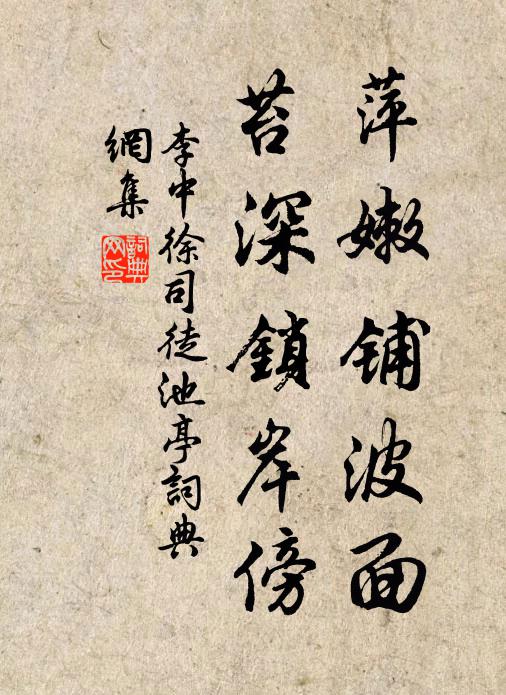 萍嫩铺波面
苔深鎖岸傍
李中徐司徒池亭詞典
網集
詞典
网印